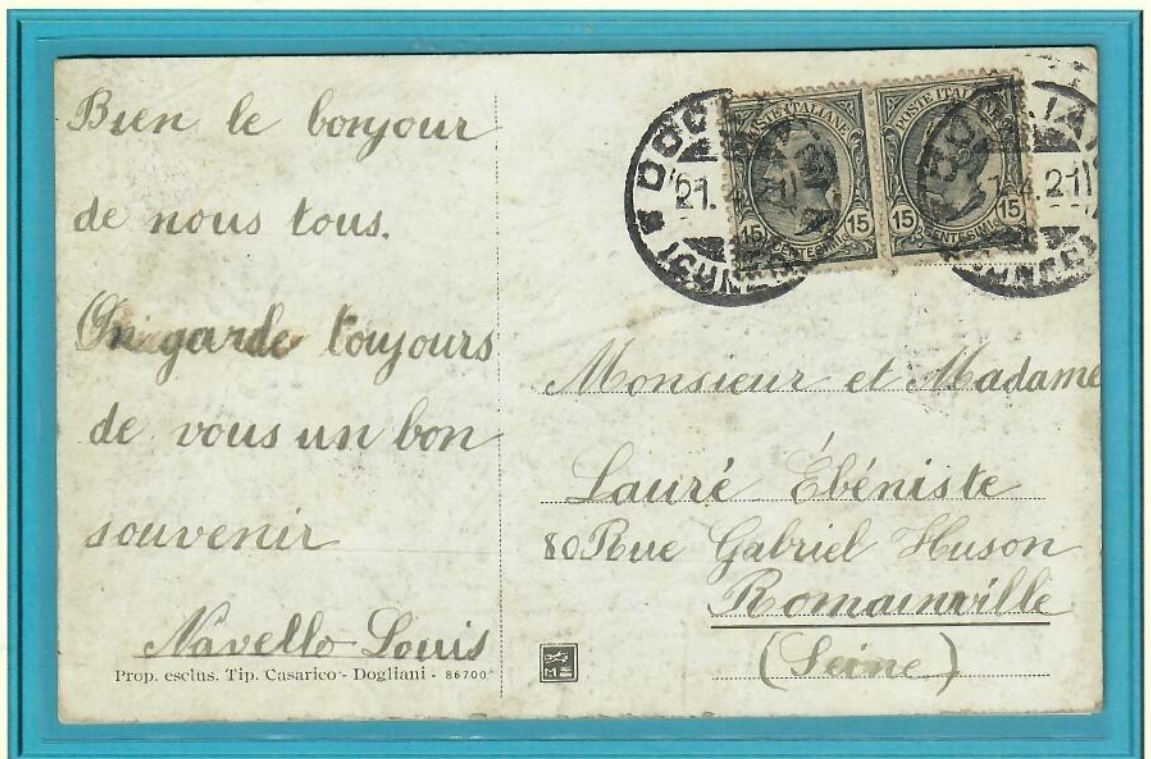 Bien le bonjour
de nous tous.
On garde toujours
de vous un bon
souvenir
Navello Louis
Prop. esclus. Tip. Casarico - Dogliani - 86700
POSTE ITALIANE
15 15
CENTESIMI
POSTE ITALIANE
15 15
CENTESIMI
21.4.21
(CUNEO)
1.4.21
(CUNEO)
Monsieur et Madame
Lauré Ébéniste
80 Rue Gabriel Huson
Romainville
(Seine)
M